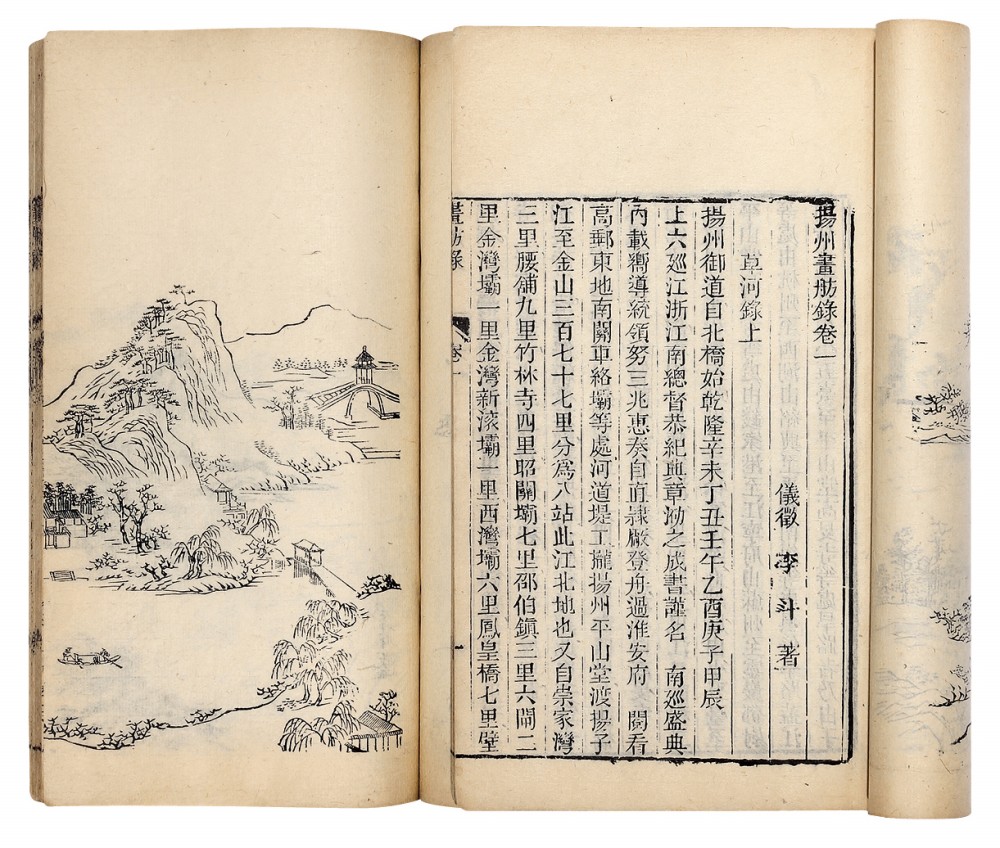 揚州畫舫錄卷一
儀徵 李斗 著
草河錄上
揚州御道自北橋始乾隆辛未丁丑壬午乙酉庚子甲辰
上六廵江浙江南總督恭紀典章泐之成書謹名曰 南廵盛典
內載嚮導統領努三兆惠奏自直隸厰登舟過淮安府 閱看
高郵東地南關車絡壩等處河道堤工攏揚州平山堂渡揚子
江至金山三百七十七里分爲八站此江北地也又自崇家灣
三里腰舖九里竹林寺四里昭關壩七里邵伯鎮三里六閘二
里金灣壩一里金灣新滚壩一里西灣壩六里鳳皇橋七里壁
畫舫錄 卷一 一